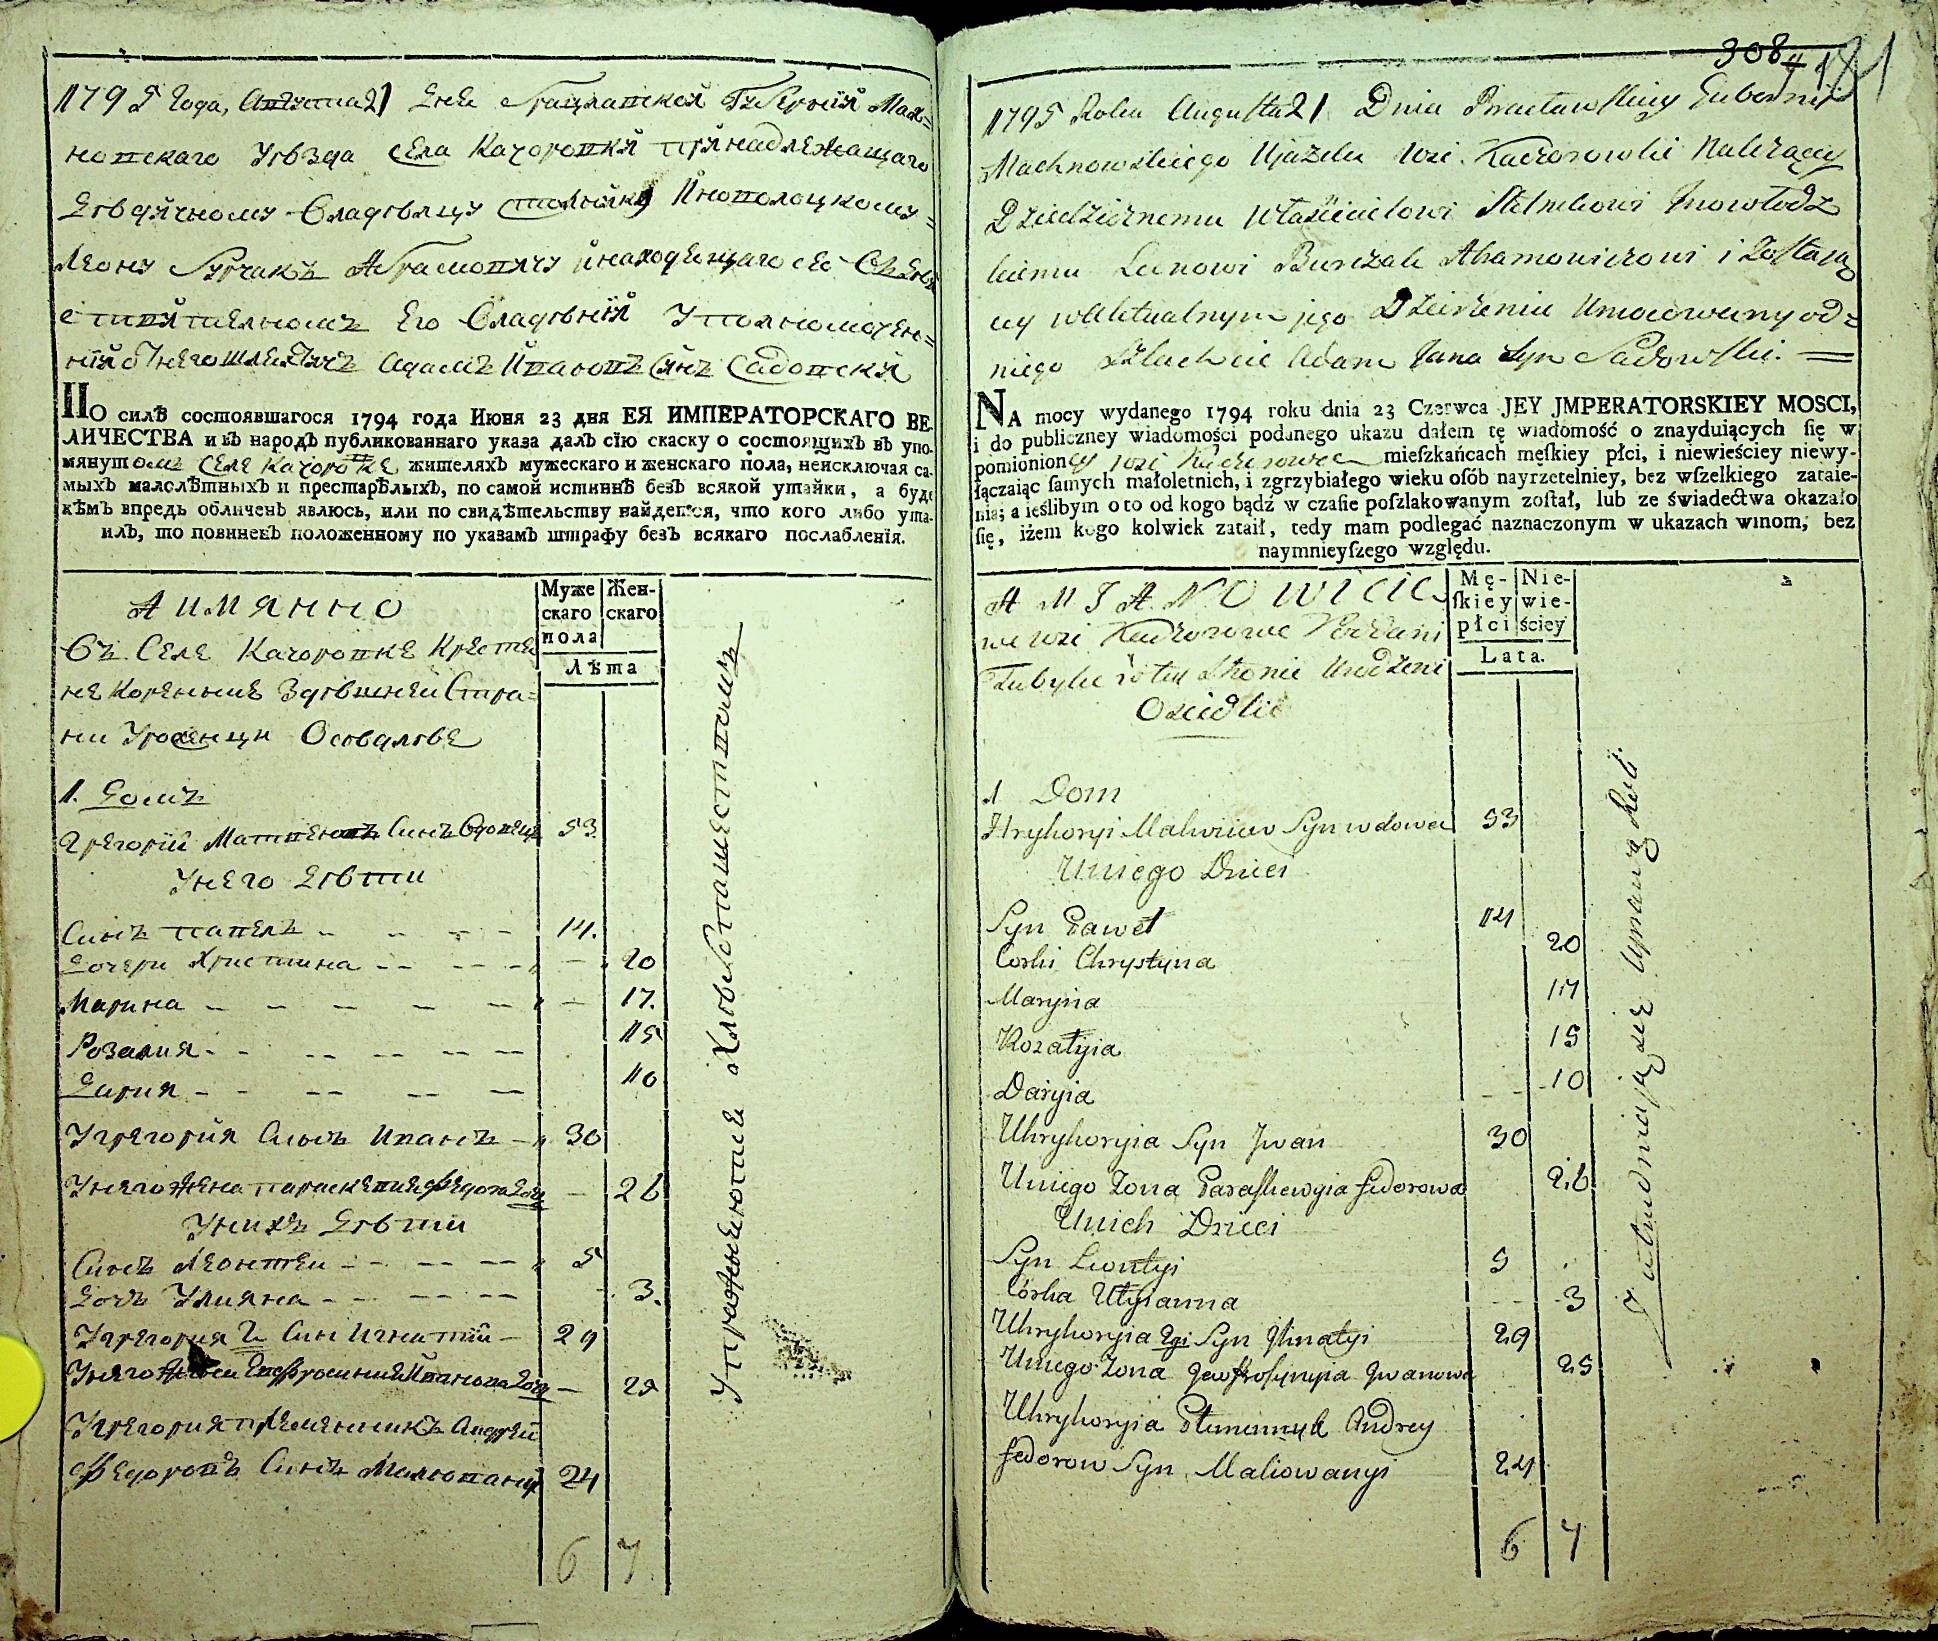 1795 Года, Августа 21 дня Брацлавской Губерній Мах=
новскаго Уѣзда села Качоровкй прйнадлежащаго
дѣдйчному Владѣлцу столнйку Йнополоцкому
Леону Бурчакъ Абрамовйчу
Его Владѣнія Уполномочен=
ній Адамъ Йвановъ Сйнъ Садовскй
ПО силѣ состоявшагося 1794 года Июня 23 дня ЕЯ ИМПЕРАТОРСКАГО ВЕ-
ЛИЧЕСТВА и въ народъ публикованнаго указа далъ сію скаску о состоящихъ въ упо-
мянутомъ селе Качоровке жителяхъ мужескаго и женскаго пола, неисключая са-
мыхъ малолѣтныхъ и престарѣлыхъ, по самой истиннѣ безъ всякой утайки, а буде
кѣмъ впредь обличенъ явлюсь, или по свидѣтельству найдется, что кого либо ута-
илъ, то повиненъ положенному по указамъ штрафу безъ всякаго послабленія.
А имянно
Въ Селе Качоровке Крестя
не Коренние Здѣшней Стра=
ни Уроженци Оседлие
Муже
скаго
пола
Жен-
скаго
Лѣта
1. Домъ
Грегорій Матвеювъ Синъ Вдовецъ 53
Унего Дѣти
Синъ Павелъ 14.
Дочери Христина 20
Марина 17.
Розалия 15
Дария 10
Угрегория Синъ Иванъ 30
Унего Жена Параскевия Федорова Дочь 26
Унихъ Дѣти
Синъ Леонтеи 5
Дочь Улияна 3.
Угрегория 2й Син Игнатій 29
Унего Жена Евфросиния Йванова Дочь 25
Угрегория Племенникъ Андрей
Федоровъ Синъ Малюваний 24
6 7
Упражнеютце Хлѣбопашествомъ
308
181
1795 Roku Augusta 21 Dnia Bracławskiey Gubernij
Machnowskiego Ujazdu wsi Kaczorowki Należący
Dziedzicznemu Właścicielowi Stolnikowi Inowłodz
kiemu Leonowi Burczak Abramowiczowi i Zostają
cy w Aktualnym jego Dzierżeniu Umocowany od=
niego Szlachcic Adam Jana Syn Sadowski.
NA mocy wydanego 1794 roku dnia 23 Czerwca JEY JMPERATORSKIEY MOSCI,
i do publiczney wiadomości podanego ukazu dałem tę wiadomość o znayduiących ſię w
pomionioney wsi Kaczorowce mieſzkańcach męſkiey płci, i niewieściey niewy-
łączaiąc ſamych małoletnich, i zgrzybiałego wieku osób nayrzetelniey, bez wſzelkiego zataie-
nia; a ieślibym oto od kogo bądź w czaſie poſzlakowanym zoſtał, lub ze świadectwa okazało
ſię, iżem kogo kolwiek zataił, tedy mam podlegać naznaczonym w ukazach winom, bez
naymnieyſzego względu.
A MIANOWICIE
we wsi Kaczorowce Poddani
Tubylce w tey Stronie Urodzeni
Osiedli
Mę-
ſkiey
płci
Nie-
wie-
ściey
Lata.
1 Dom
Hryhoryi Matwiiow Syn wdowec 53
Uniego Dzieci
Syn Paweł 14
Corki Chrystyna 20
Maryna 17
Rozalyia 15
Daryia 10
Uhryhoryia Syn Jwan 30
Uniego Zona Paraskewyia Fedorowa 26
Unich Dzieci
Syn Leontyi 5
Córka Ulyianna 3
Uhryhoryia 2gi Syn Yhnatyi 29
Uniego Zona Jewfrosynyia Jwanowa 25
Uhryhoryia Plemennyk Andrey
Fedorow Syn Maliowanyi 24
6 7
Zatrudniaią się Uprawą Roli